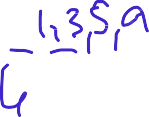 1,3,5,9
4